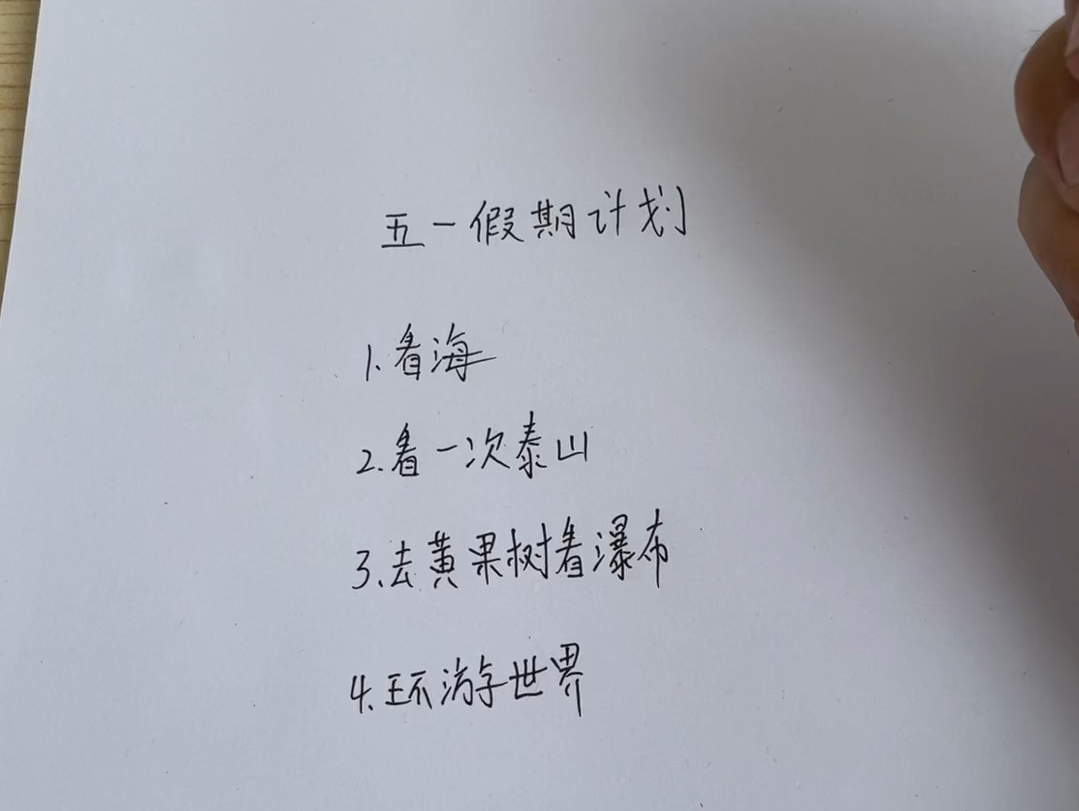 五一假期计划
1.看海
2.看一次泰山
3.去黄果树看瀑布
4.环游世界